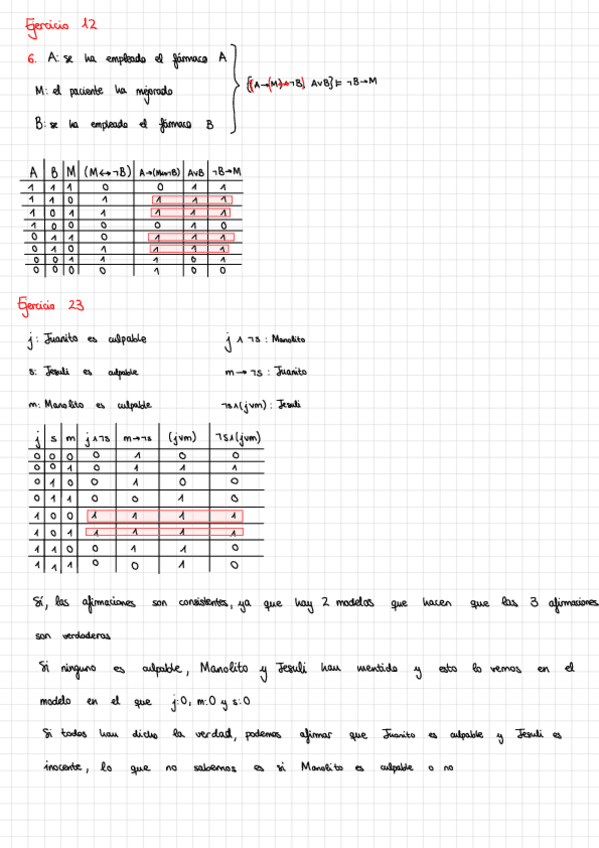 Ejercicio 12
6. A: se ha empleado el fármaco A
M: el paciente ha mejorado
B: se ha empleado el fármaco B
{(A→(M↔¬B), A∨B} ⊨ ¬B→M
A B M (M↔¬B) A→(M↔¬B) A∨B ¬B→M
1 1 1 0 0 1 1
1 1 0 1 1 1 1
1 0 1 1 1 1 1
1 0 0 0 0 1 0
0 1 1 0 1 1 1
0 1 0 1 1 1 1
0 0 1 1 1 0 1
0 0 0 0 1 0 0
Ejercicio 23
j: Juanito es culpable
j ∧ ¬s : Manolito
s: Jesuli es culpable
m → ¬s : Juanito
m: Manolito es culpable
¬s∧(j∨m) : Jesuli
j s m j∧¬s m→¬s (j∨m) ¬s∧(j∨m)
0 0 0 0 1 0 0
0 0 1 0 1 1 1
0 1 0 0 1 0 0
0 1 1 0 0 1 0
1 0 0 1 1 1 1
1 0 1 1 1 1 1
1 1 0 0 1 1 0
1 1 1 0 0 1 0
Sí, las afirmaciones son consistentes, ya que hay 2 modelos que hacen que las 3 afirmaciones
son verdaderas
Si ninguno es culpable, Manolito y Jesuli han mentido y esto lo vemos en el
modelo en el que j:0, m:0 y s:0
Si todos han dicho la verdad, podemos afirmar que Juanito es culpable y Jesuli es
inocente, lo que no sabemos es si Manolito es culpable o no